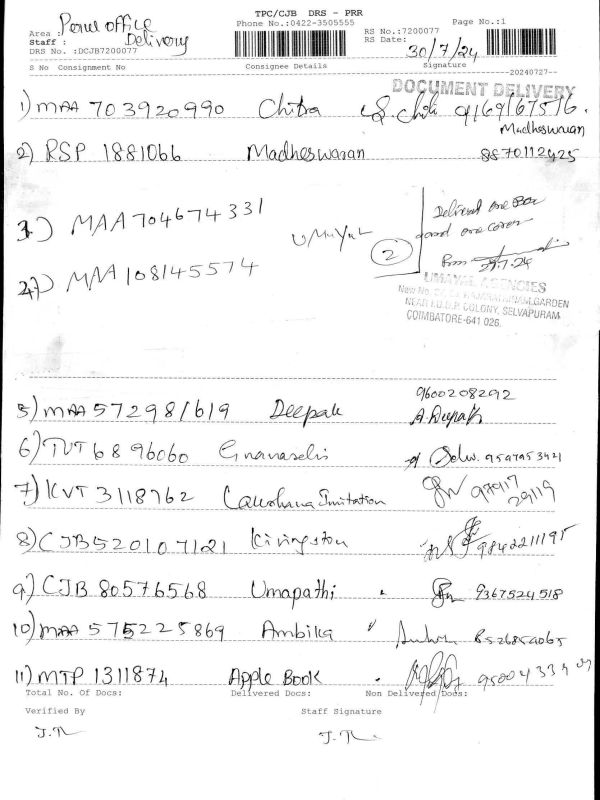 TPC/CJB DRS - PRR
Phone No.:0422-3505555
Page No.:1
RS No.:7200077
RS Date: 30/7/24
Area : office
Staff : Delivery
DRS No. :DCJB7200077
S No Consignment No Consignee Details Signature
20240727
DOCUMENT DELIVERY
1) MAA 703920990 Chitra
Madheswaran
2) RSP 1881066 Madheswaran 8870112425
3) MAA704674331
UMAYAL
2
Delivered one Box
and one cover
29.7.24
4) MAA 108145574
UMAYAL AGENCIES
New No. GARDEN
COLONY, SELVAPURAM
COIMBATORE-641 026.
9600208292
5) MAA 572981619 Deepak A. Deepak
6) TVT 6896060 Gnanaselvi Selvi. 9597953421
7) KVT 3118762 Imitation 97917
29119
8) CJB520107121 Kivingston 9842211195
9) CJB 80576568 Umapathi 9367524518
10) MAA 575225869 Ambika 8526854065
11) MTP 1311874 Apple Book
Total No. Of Docs: Delivered Docs: Non Delivered Docs:
Verified By Staff Signature